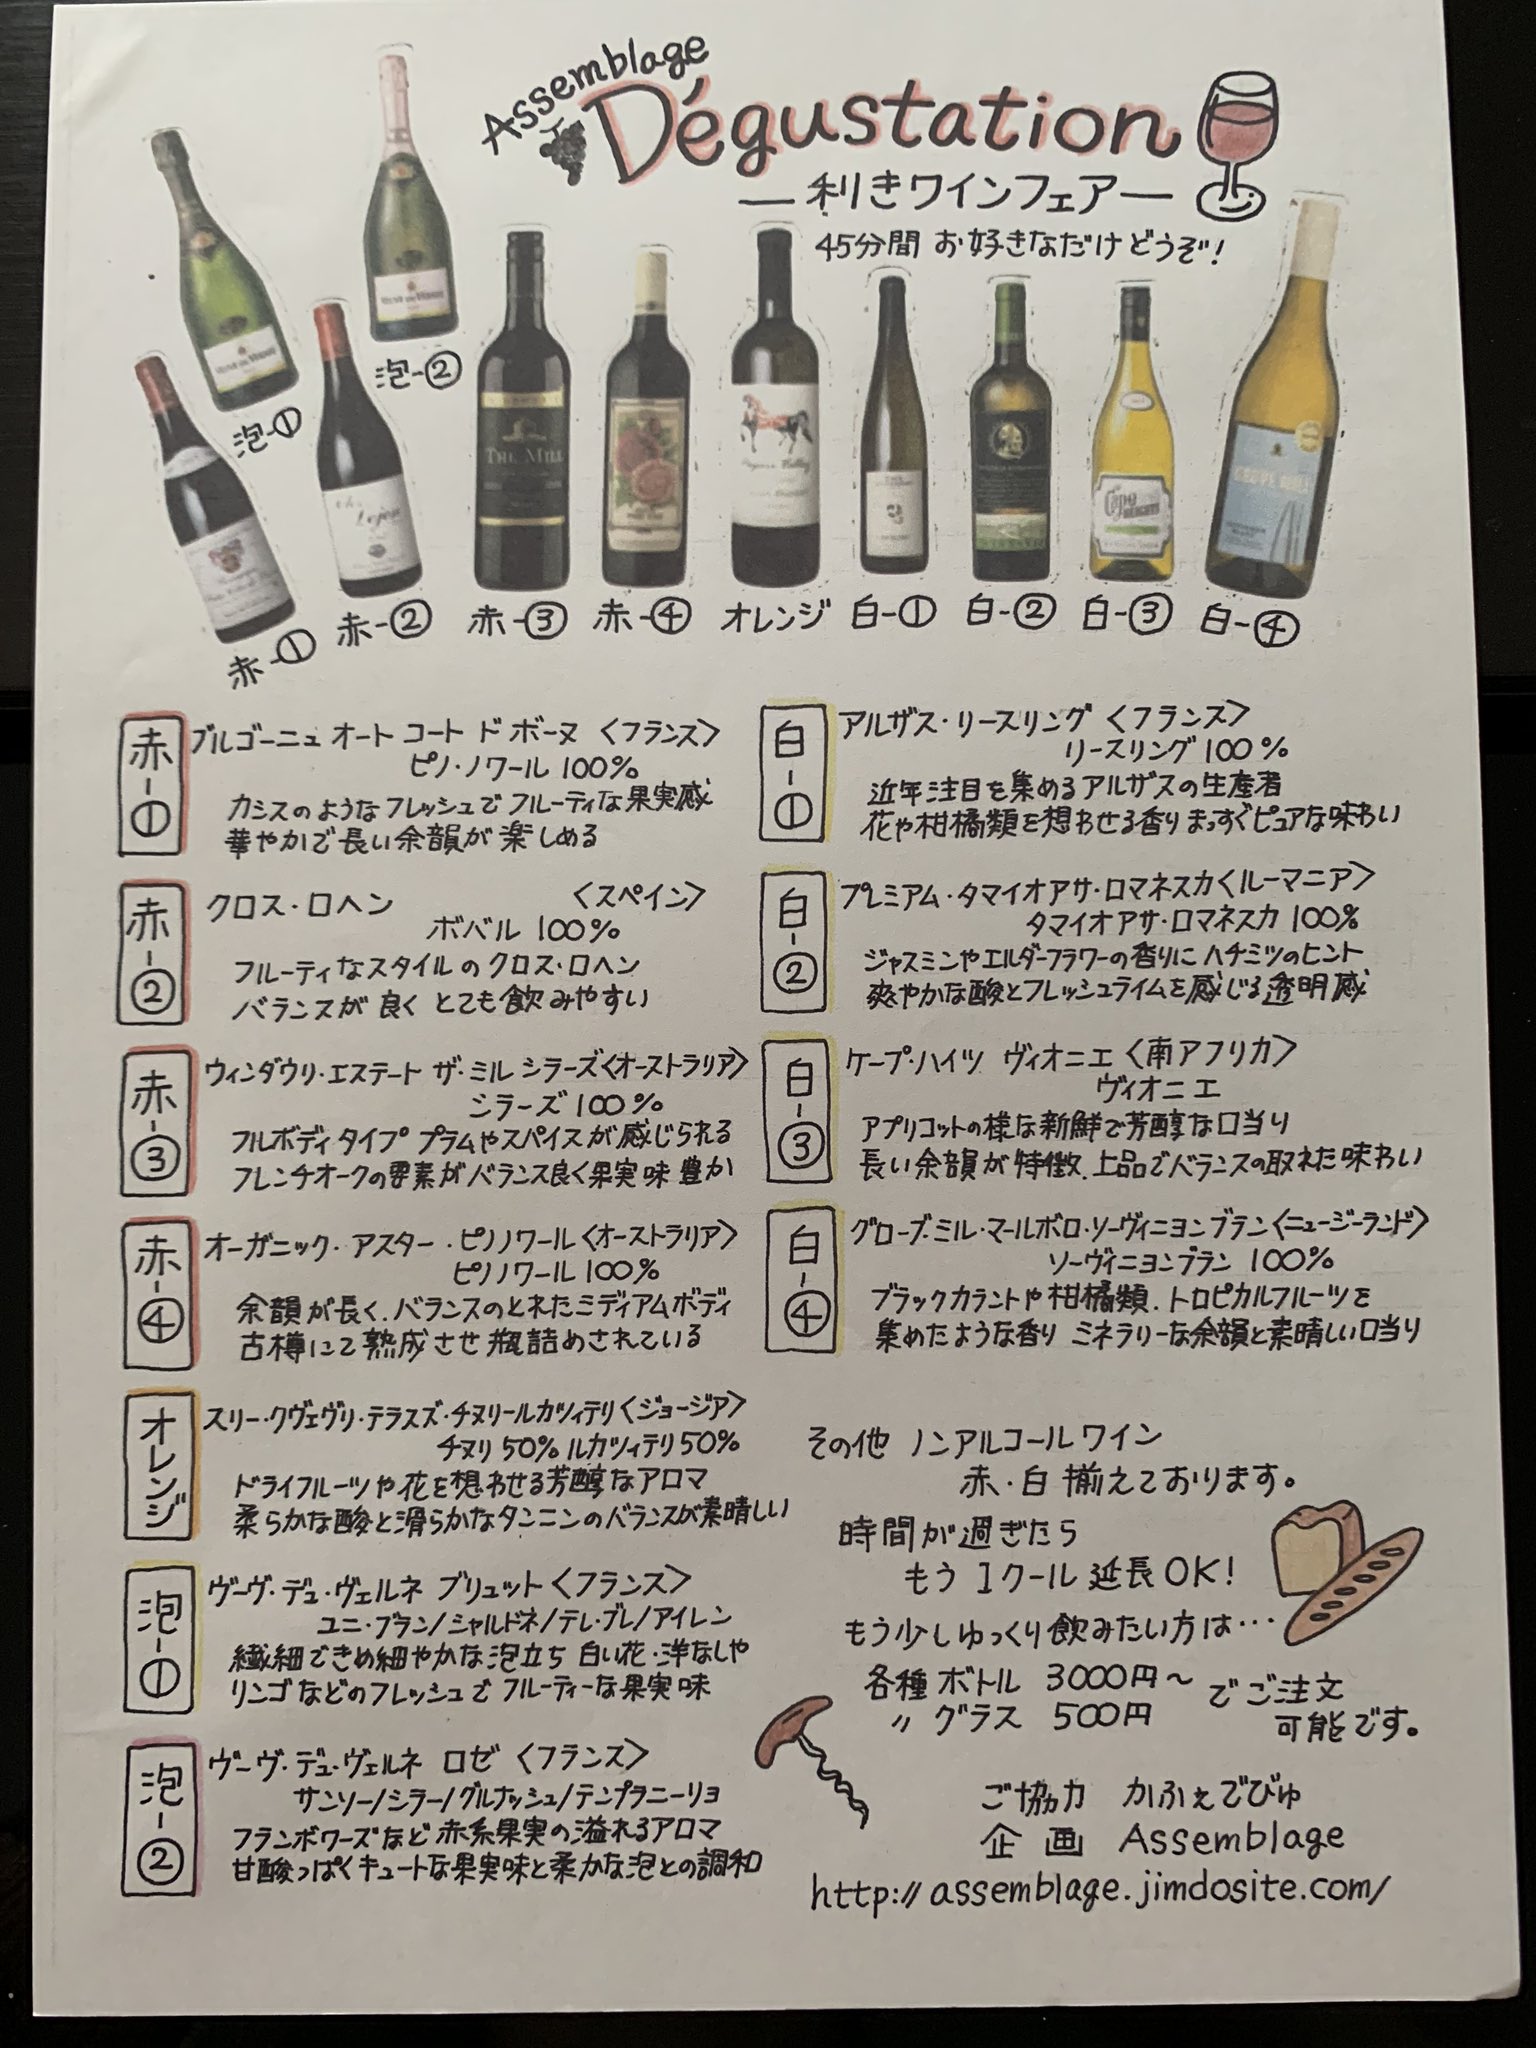 Assemblage
Dégustation
ー利きワインフェアー
45分間 お好きなだけどうぞ!
泡-②
泡-①
THE MILL
赤-①
赤-②
赤-③
赤-④
オレンジ
白-①
白-②
白-③
白-④
赤-①
ブルゴーニュ オート コート ド ボーヌ〈フランス〉
ピノ・ノワール 100%
カシスのようなフレッシュでフルーティな果実感
華やかで長い余韻が楽しめる
赤-②
クロス・ロヘン 〈スペイン〉
ボバル 100%
フルーティなスタイルのクロス・ロヘン
バランスが良くとても飲みやすい
赤-③
ウィンダウリ・エステート ザ・ミル シラーズ〈オーストラリア〉
シラーズ 100%
フルボディタイプ プラムやスパイスが感じられる
フレンチオークの要素がバランス良く果実味豊か
赤-④
オーガニック・アスター・ピノノワール〈オーストラリア〉
ピノノワール 100%
余韻が長く、バランスのとれたミディアムボディ
古樽にて熟成させ瓶詰めされている
オレンジ
スリー・クヴェヴリ・テラスズ・チヌリールカツィテリ〈ジョージア〉
チヌリ 50% ルカツィテリ 50%
ドライフルーツや花を想わせる芳醇なアロマ
柔らかな酸と滑らかなタンニンのバランスが素晴しい
泡-①
ヴーヴ・デュ・ヴェルネ ブリュット〈フランス〉
ユニ・ブラン/シャルドネ/テレ・ブレ/アイレン
繊細できめ細やかな泡立ち 白い花・洋なしや
リンゴなどのフレッシュでフルーティーな果実味
泡-②
ヴーヴ・デュ・ヴェルネ ロゼ〈フランス〉
サンソー/シラー/グルナッシュ/テンプラニーリョ
フランボワーズなど赤系果実の溢れるアロマ
甘酸っぱくキュートな果実味と柔かな泡との調和
白-①
アルザス・リースリング〈フランス〉
リースリング 100%
近年注目を集めるアルザスの生産者
花や柑橘類を想わせる香り まっすぐピュアな味わい
白-②
プレミアム・タマイオアサ・ロマネスカ〈ルーマニア〉
タマイオアサ・ロマネスカ 100%
ジャスミンやエルダーフラワーの香りにハチミツのヒント
爽やかな酸とフレッシュライムを感じる透明感
白-③
ケープ・ハイツ ヴィオニエ〈南アフリカ〉
ヴィオニエ
アプリコットの様な新鮮で芳醇な口当り
長い余韻が特徴、上品でバランスの取れた味わい
白-④
グローブ・ミル・マールボロ・ソーヴィニヨンブラン〈ニュージーランド〉
ソーヴィニヨンブラン 100%
ブラックカラントや柑橘類、トロピカルフルーツを
集めたような香り ミネラリーな余韻と素晴しい口当り
その他 ノンアルコールワイン
赤・白 揃えております。
時間が過ぎたら
もう1クール延長OK!
もう少しゆっくり飲みたい方は…
各種ボトル 3000円〜
〃 グラス 500円
でご注文
可能です。
ご協力 かふぇでびゅ
企画 Assemblage
http://assemblage.jimdosite.com/